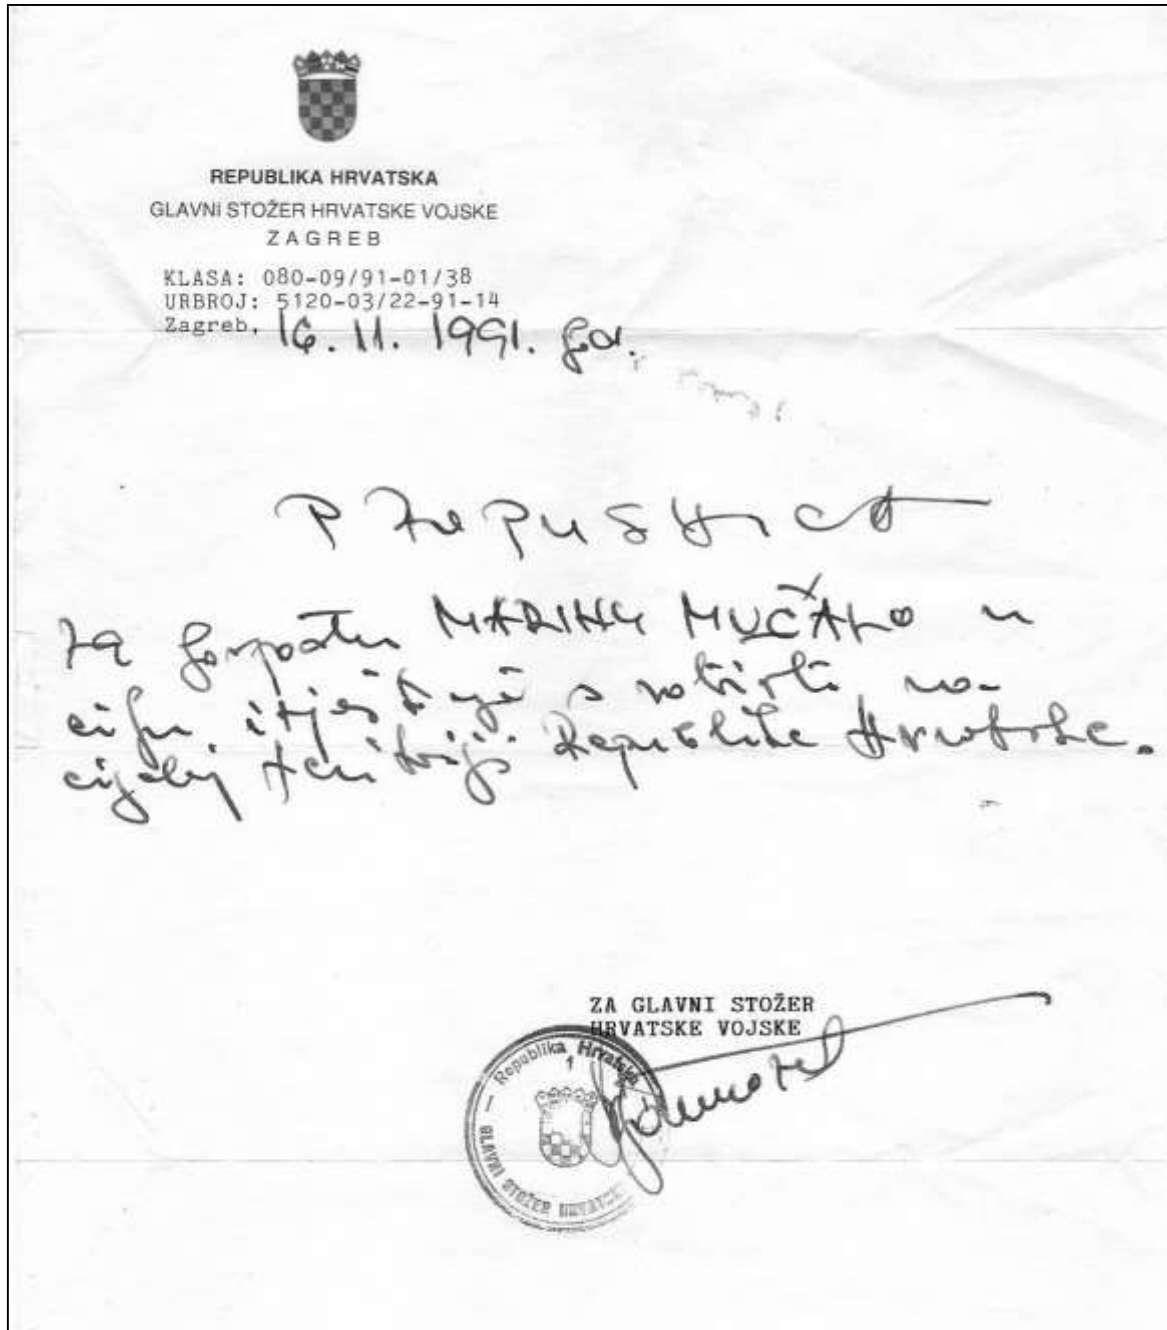 REPUBLIKA HRVATSKA
GLAVNI STOŽER HRVATSKE VOJSKE
ZAGREB
KLASA: 080-09/91-01/38
URBROJ: 5120-03/22-91-14
Zagreb, 16. 11. 1991. god.
PROPUSNICA
za gospođu MARINU MUČALO u
cilju izvještaja s ratišta na
cijeloj teritoriji Republike Hrvatske.
ZA GLAVNI STOŽER
HRVATSKE VOJSKE
Republika Hrvatska
1
GLAVNI STOŽER HRVATSKE